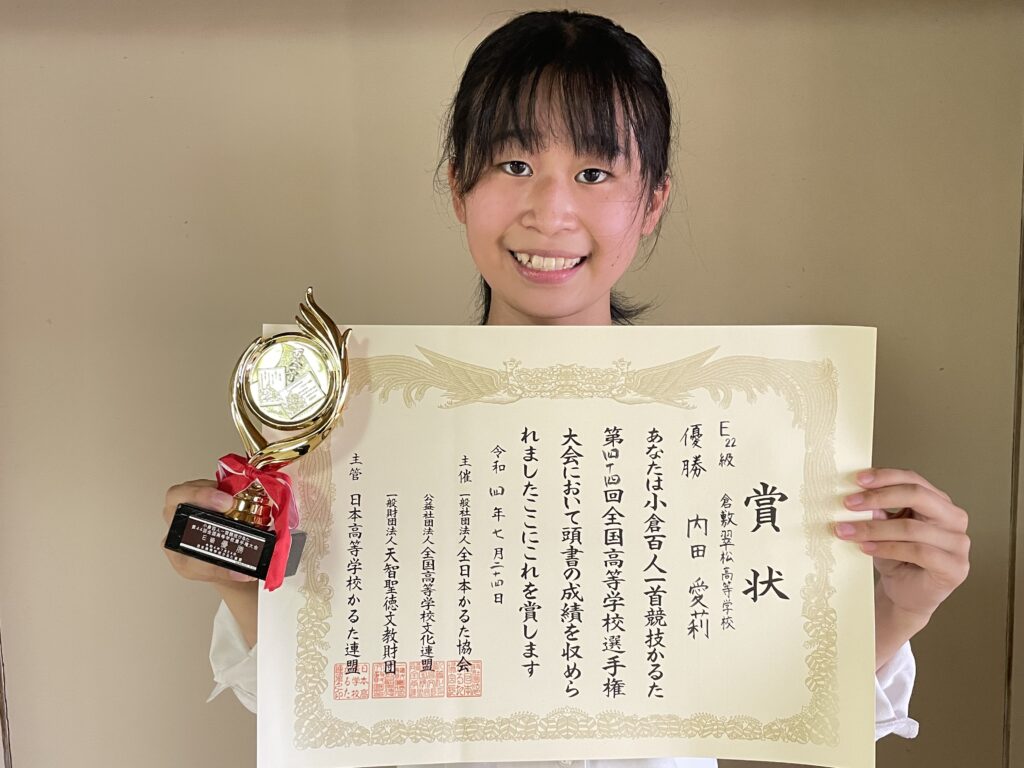 賞状
E22級
倉敷翠松高等学校
優勝 内田 愛莉
あなたは小倉百人一首競技かるた
第四十四回全国高等学校選手権
大会において頭書の成績を収めら
れましたここにこれを賞します
令和四年七月二十四日
主催 一般社団法人全日本かるた協会
公益社団法人全国高等学校文化連盟
一般財団法人天智聖徳文教財団
主管 日本高等学校かるた連盟